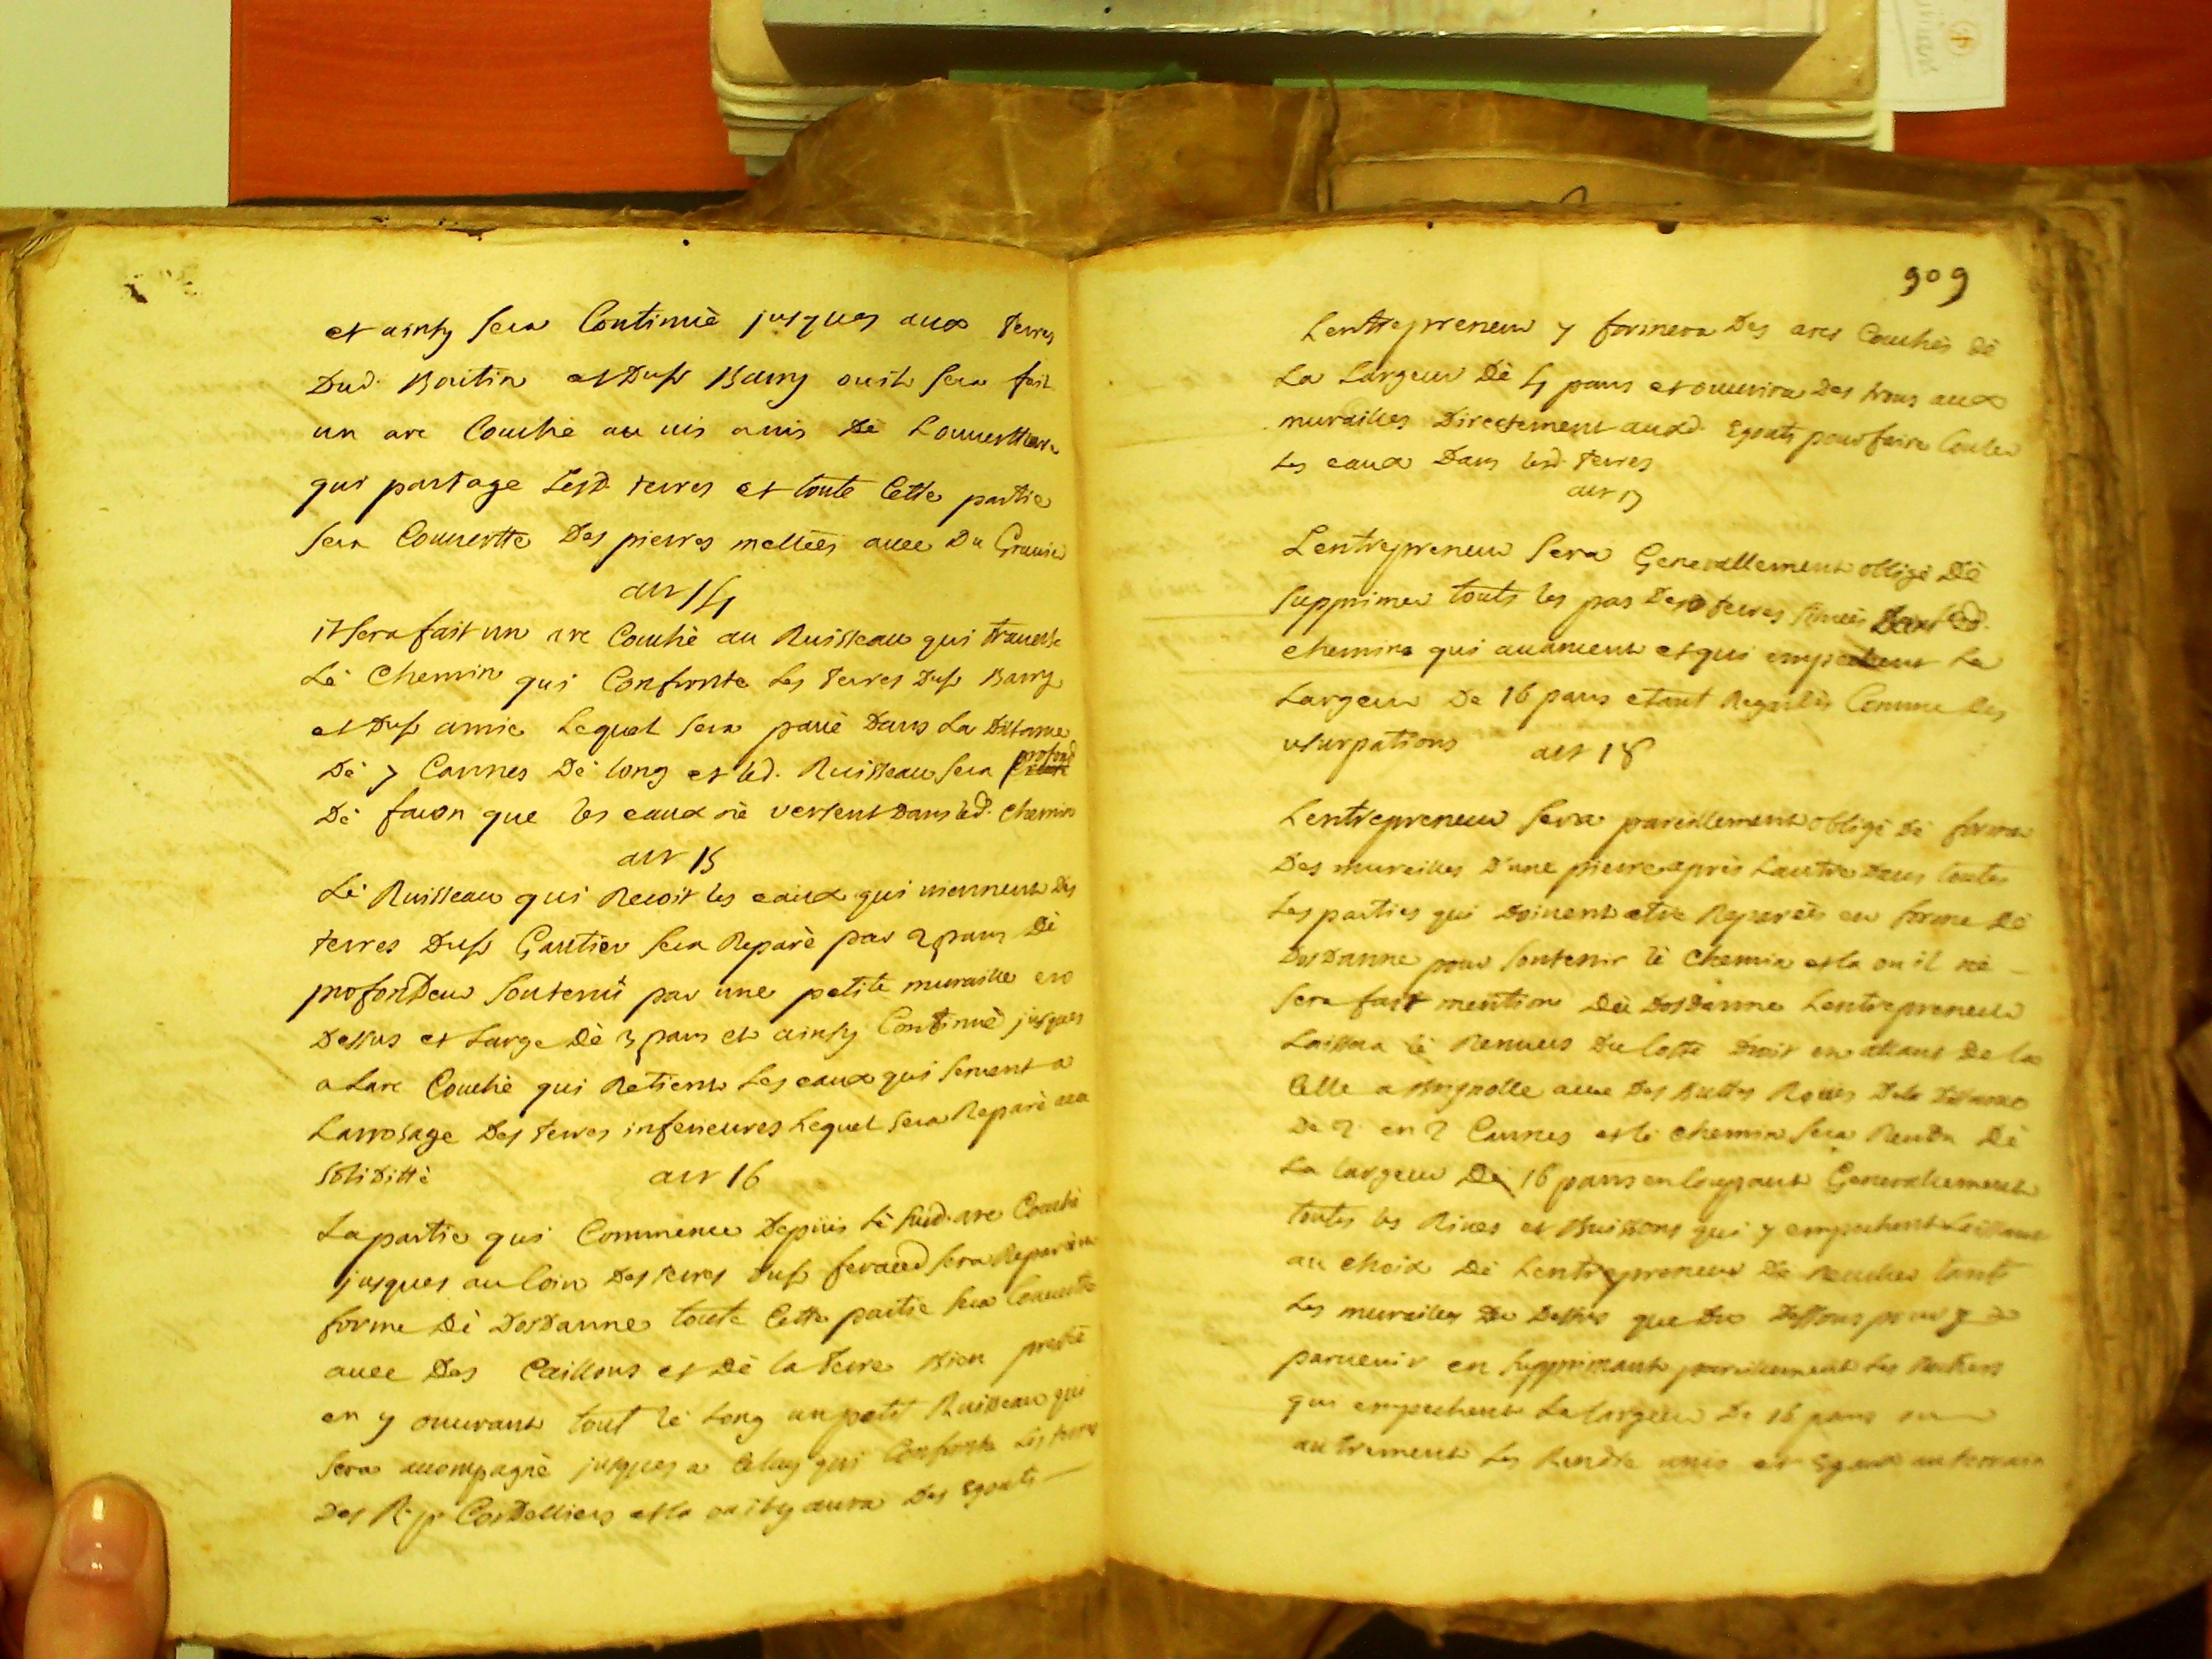 et ainsy sera Continué jusques aux terres
Dud. Boitin et Dusr Barry ou il sera fait
un arc Couché au vis avis dé Louuertture
qui partage Lesd. terres et toute Cette partie
sera Couuertte Des pierres mellées auec Du Grauié
art 14
il sera fait un arc Couché au Ruisseau qui trauerse
Lé Chemin qui Confronte Les terres Dusr Barry
et Dusr amic Lequel sera paué Dans La Distance
Dé 7 Cannes Dé long et led. Ruisseau sera profond
Dé facon que les eaux né versent Dans led. chemin
art 15
Lé Ruisseau qui Recoit les eaux qui viennent Des
terres Dusr Gautier sera Reparé par 2 pans Dé
profondeur soutenu par une petite muraille en
Dessus et Large Dé 3 pans et ainsy Continué jusques
a Larc Couché qui Retient Les eaux qui seruent a
Larrosage Des terres inferieures Lequel sera Reparé auec
soliditté
art 16
La partie qui Commence Depuis Lé susd. arc Couché
jusques au Coin Des terres Dusr feraud sera Reparée en
forme Dé DosDanne toute Cette partie sera Couuertte
auec Des Caillous et Dé la terre Bien pressée
en y ouurant tout lé Long un petit Ruisseau qui
sera acompagné jusques a Celuy qui Confronte Les terres
Des R. p. CorDelliers et la ou il y aura Des Egouts
909
Lentrepreneur y formera Des arcs Couchés dé
La Largeur Dé 4 pans et ouurira Des trous aux
murailles Directement auxd. Egouts pour faire Couler
Les eaux Dans lesd. terres
art 17
Lentrepreneur sera Generallement obligé Dé
supprimer touts les pas Des terres
chemins qui auancent et qui empechent La
Largeur De 16 pans etant Regardés Comme Des
usurpations
art 18
Lentrepreneur sera pareillement obligé dé former
Des murailles D'une pierre aprés Lautre Dans toutes
Les parties qui Doiuent etre Reparées en forme Dé
DosDanne pour soutenir lé chemin et la ou il né
sera fait mention Dé DosDanne Lentrepreneur
Laissera lé Reuers Du Cotté Droit en allant De la
Celle a Brignolle auec Des De la Distance
De 2 en 2 Cannes et lé chemin sera Rendu Dé
La largeur Dé 16 pans en Coupant Generallement
toutes les Riues et Buissons qui y empechent Laissant
au choix Dé Lentrepreneur De Reculer tant
Les murailles De Dessus que De Dessous pour y
paruenir en supprimant pareillement Les Rochers
qui empechent La largeur De 16 pans ou
autrement Les Rendre unis et Egaux au terrain